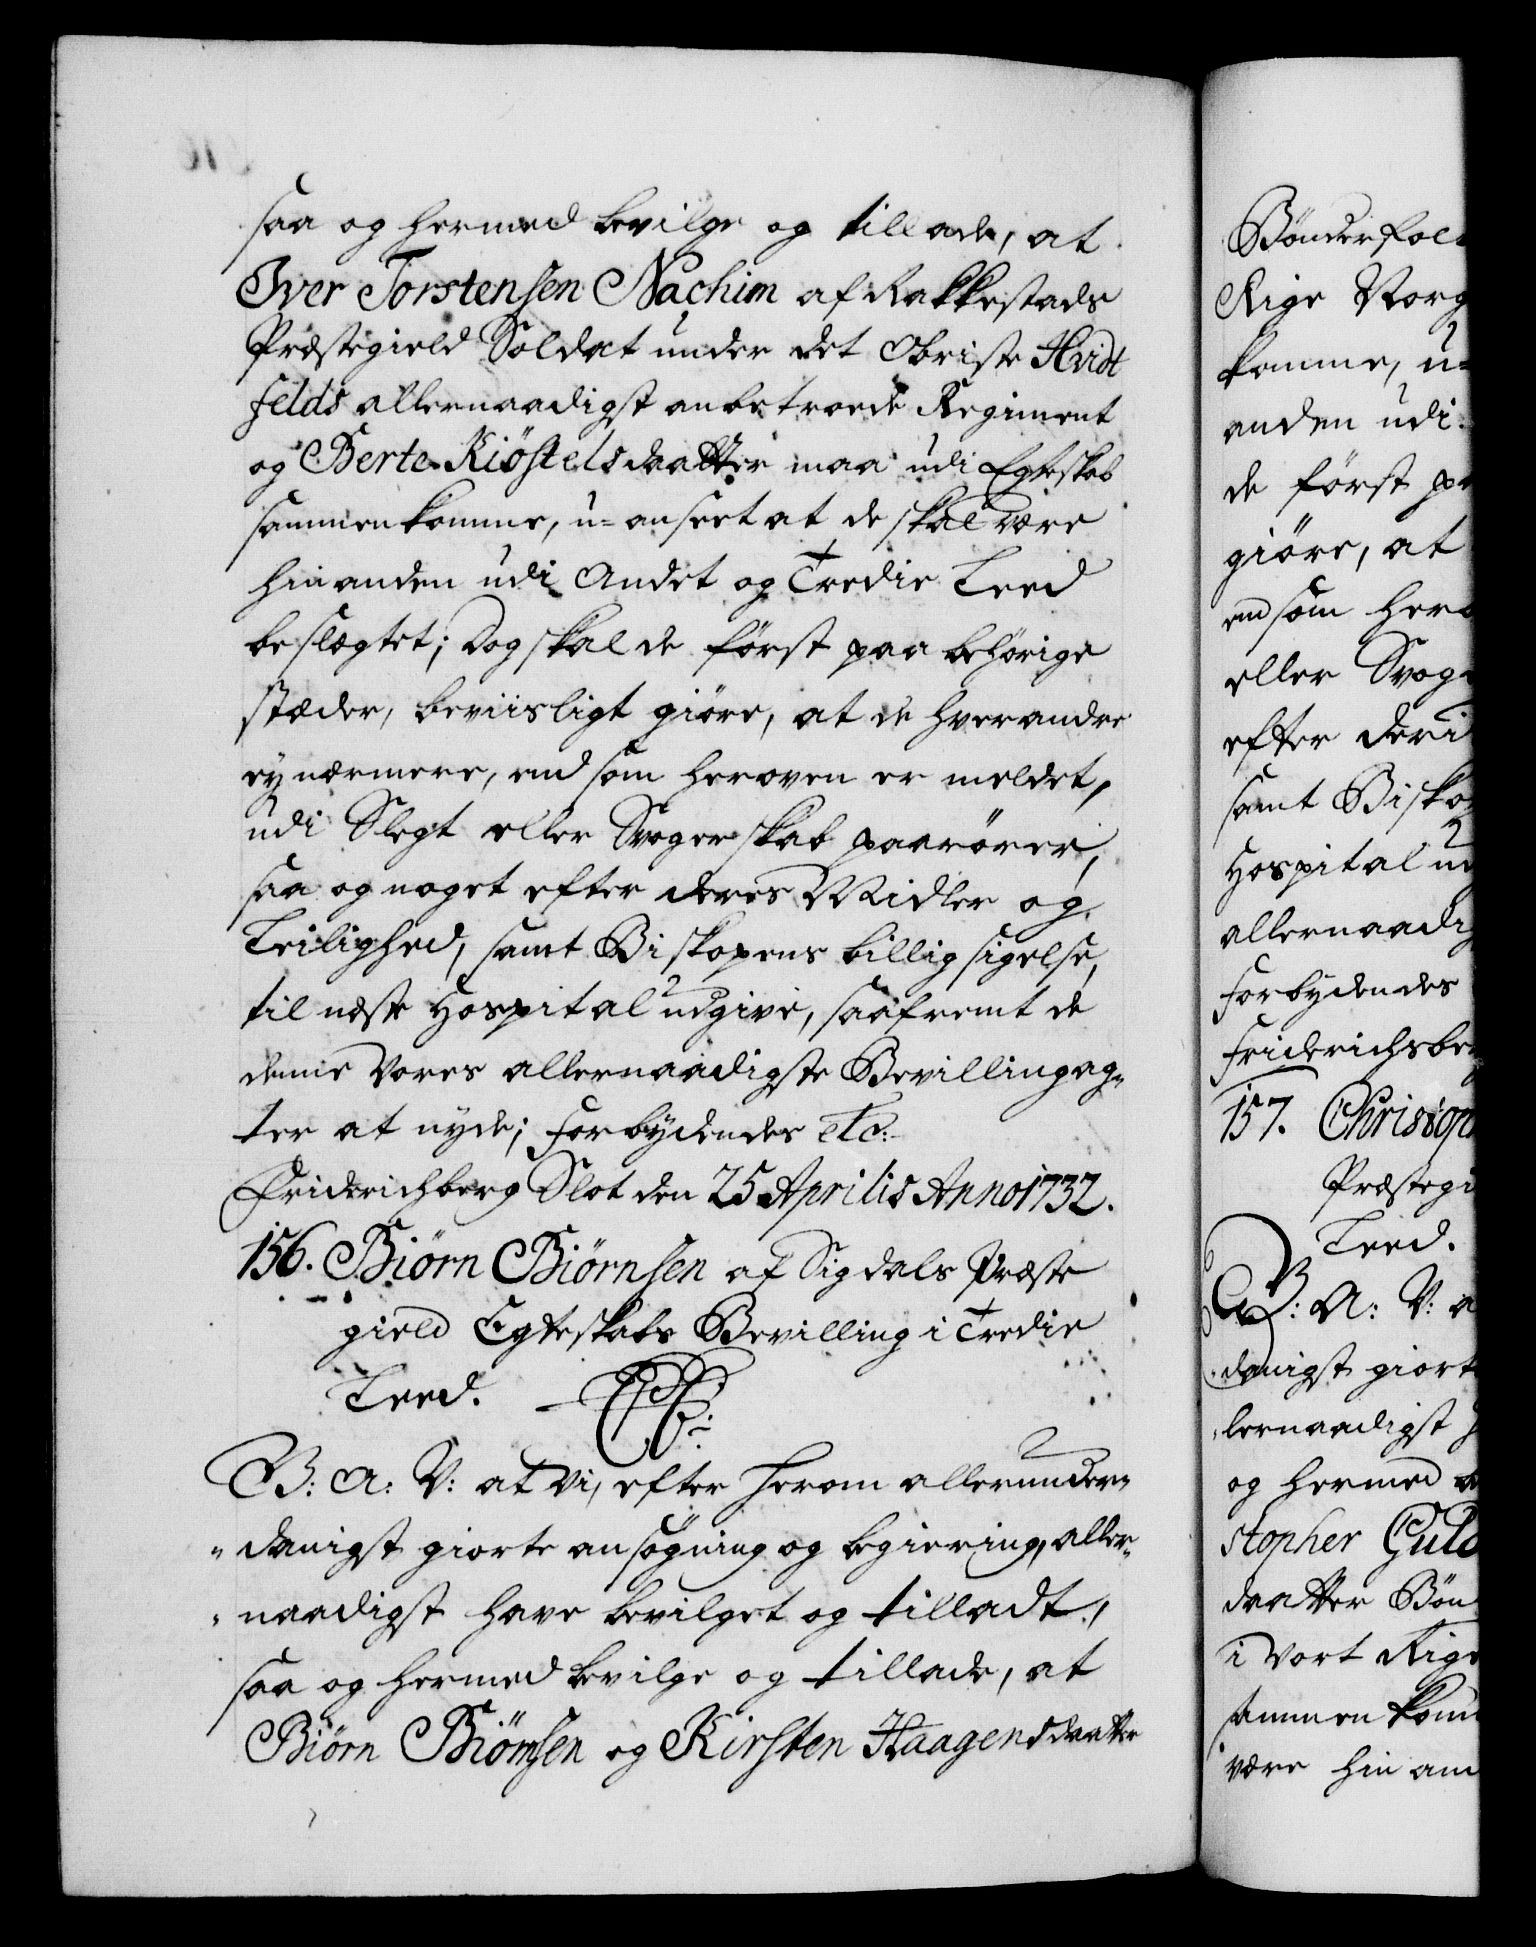 saa og hermed bevilge og tillade, at
Iver Torstensen Nachim af Rakkestads
Præstegield Soldat under det Obriste Hvidt
felds allernaadigst anbetroede Regiment
og Berte Kiöstelsdaatter maa udi Egteskab
sammenkomme, u=anseet at de skal være
hinanden udi Andet og Tredie Leed
beslægtet; Dog skal de först paa behörige
stæder, beviisligt giöre, at de hverandre
ey nærmere, end som heroven er meldet,
udi Slegt eller Svogerskab paarörer,
saa og noget efter deres Midler og
Leilighed, samt Biskopens billig sigelse,
til næste Hospital udgive, saafremt de
denne Vores allernaadigste Bevilling ag-
ter at nyde; Forbydendes etc:
Friderichberg Slot den 25 Aprilis Anno 1732.
156. Biörn Biörnsen af Sigdals Præste
gield Egteskabs Bevilling i Tredie
Leed.
G: A: V: at Vi, efter herom allerunder-
danigst giorte ansögning og begiering, aller-
naadigst have bevilget og tilladt,
saa og hermed bevilge og tillade, at
Biörn Biörnsen og Kirsten Haagensdaatter
Bönderfol
Rige Norg
komme, u=
anden udi
de först p
giöre, at
end som hero
eller Svog
efter deri
samt Bisko
Hospital ud
allernaadig
Forbydendes
Friderichsber
157. Christop
Præstegi
Leed.
G: A: V: a
danigst giort
lernaadigst h
og hermed b
stopher Guld
daatter Bön
i Vort Rige
sammenkom
være hinan